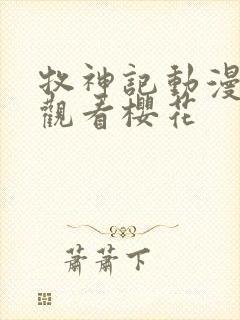 牧神記動漫
觀看櫻花
蕭蕭下